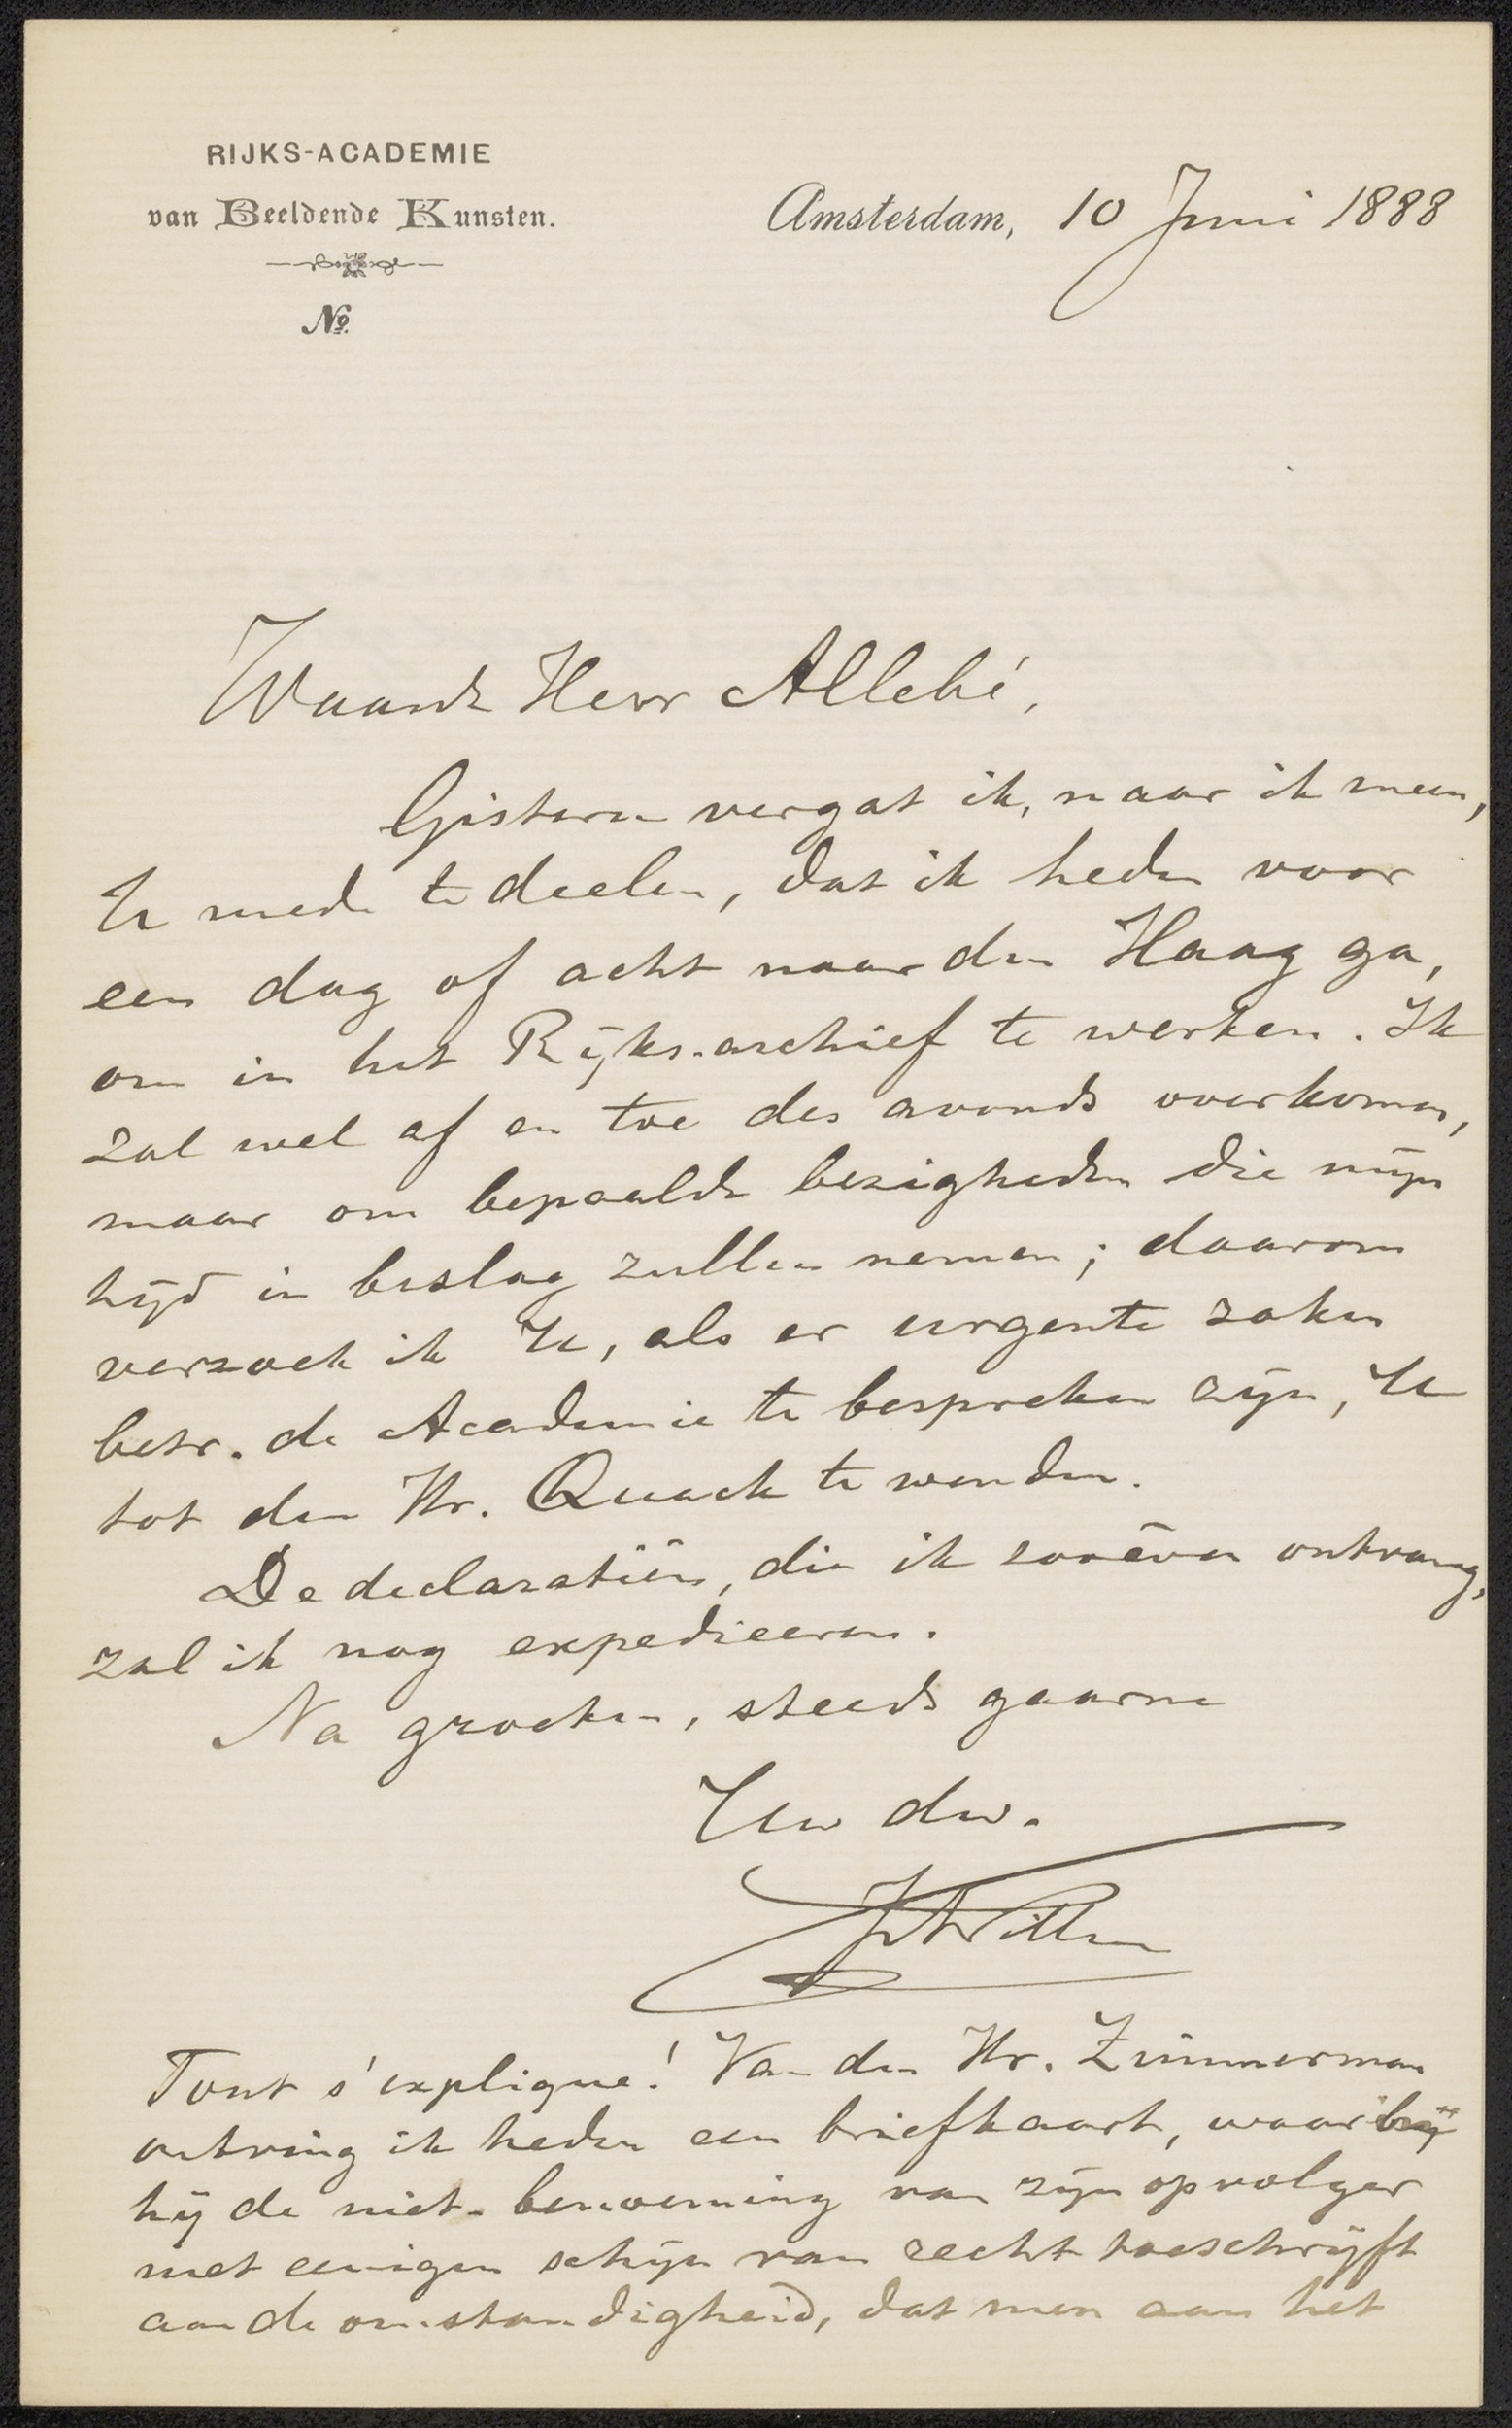 RIJKS-ACADEMIE
van Beeldende Kunsten.
No.
Amsterdam, 10 Juni 1888
Waarde Heer Allebé,
Gisteren vergat ik, naar ik meen,
U mede te deelen, dat ik heden voor
een dag of acht naar den Haag ga,
om in het Rijks-archief te werken. Ik
zal wel af en toe des avonds overkomen,
maar om bepaalde bezigheden die mijn
tijd in beslag zullen nemen; daarom
verzoek ik U, als er urgente zaken
betr. de Academie te bespreken zijn, U
tot den Hr. Quack te wenden.
De declaratiën, die ik zooëven ontvang,
zal ik nog expedieeren.
Na groeten, steeds gaarne
Uw dw.
Tout s'explique! Van den Hr. Zimmerman
ontving ik heden een briefkaart, waarbij
hij de niet-benoeming van zijn opvolger
met eenigen schijn van recht toeschrijft
aan de omstandigheid, dat men aan het